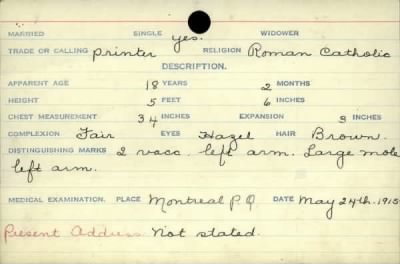 MARRIED SINGLE yes. WIDOWER
TRADE OR CALLING printer RELIGION Roman Catholic
DESCRIPTION.
APPARENT AGE 18 YEARS 2 MONTHS
HEIGHT 5 FEET 6 INCHES
CHEST MEASUREMENT 34 INCHES EXPANSION 3 INCHES
COMPLEXION Fair EYES Hazel HAIR Brown.
DISTINGUISHING MARKS 2 vacc. left arm. Large mole
left arm.
MEDICAL EXAMINATION. PLACE Montreal P.Q DATE May 24th. 1915
Present Address. Not stated.